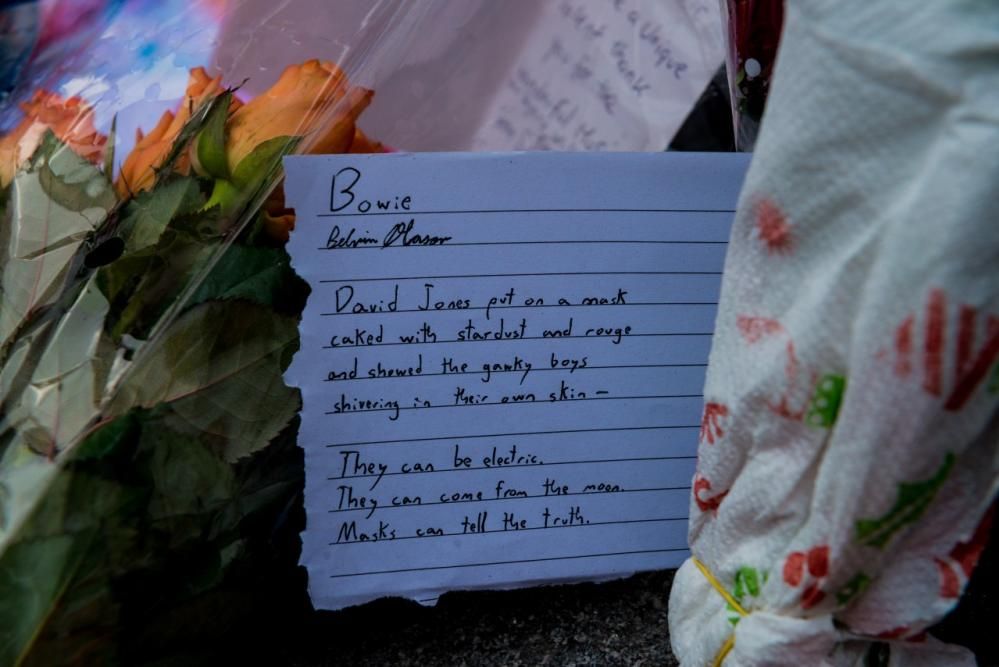 Bowie
David Jones put on a mask
caked with stardust and rouge
and showed the gawky boys
shivering in their own skin –
They can be electric.
They can come from the moon.
Masks can tell the truth.